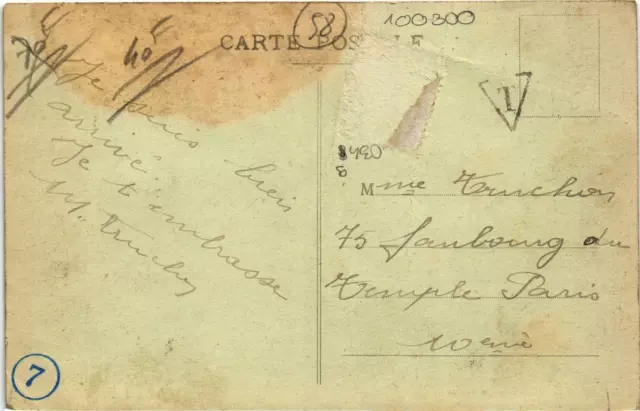 58
100300
CARTE POSTALE
40
T
Je suis bien
arrivé.
Je t embrasse
M. Truchon
Mme Truchon
75 Faubourg du
Temple Paris
10eme
7